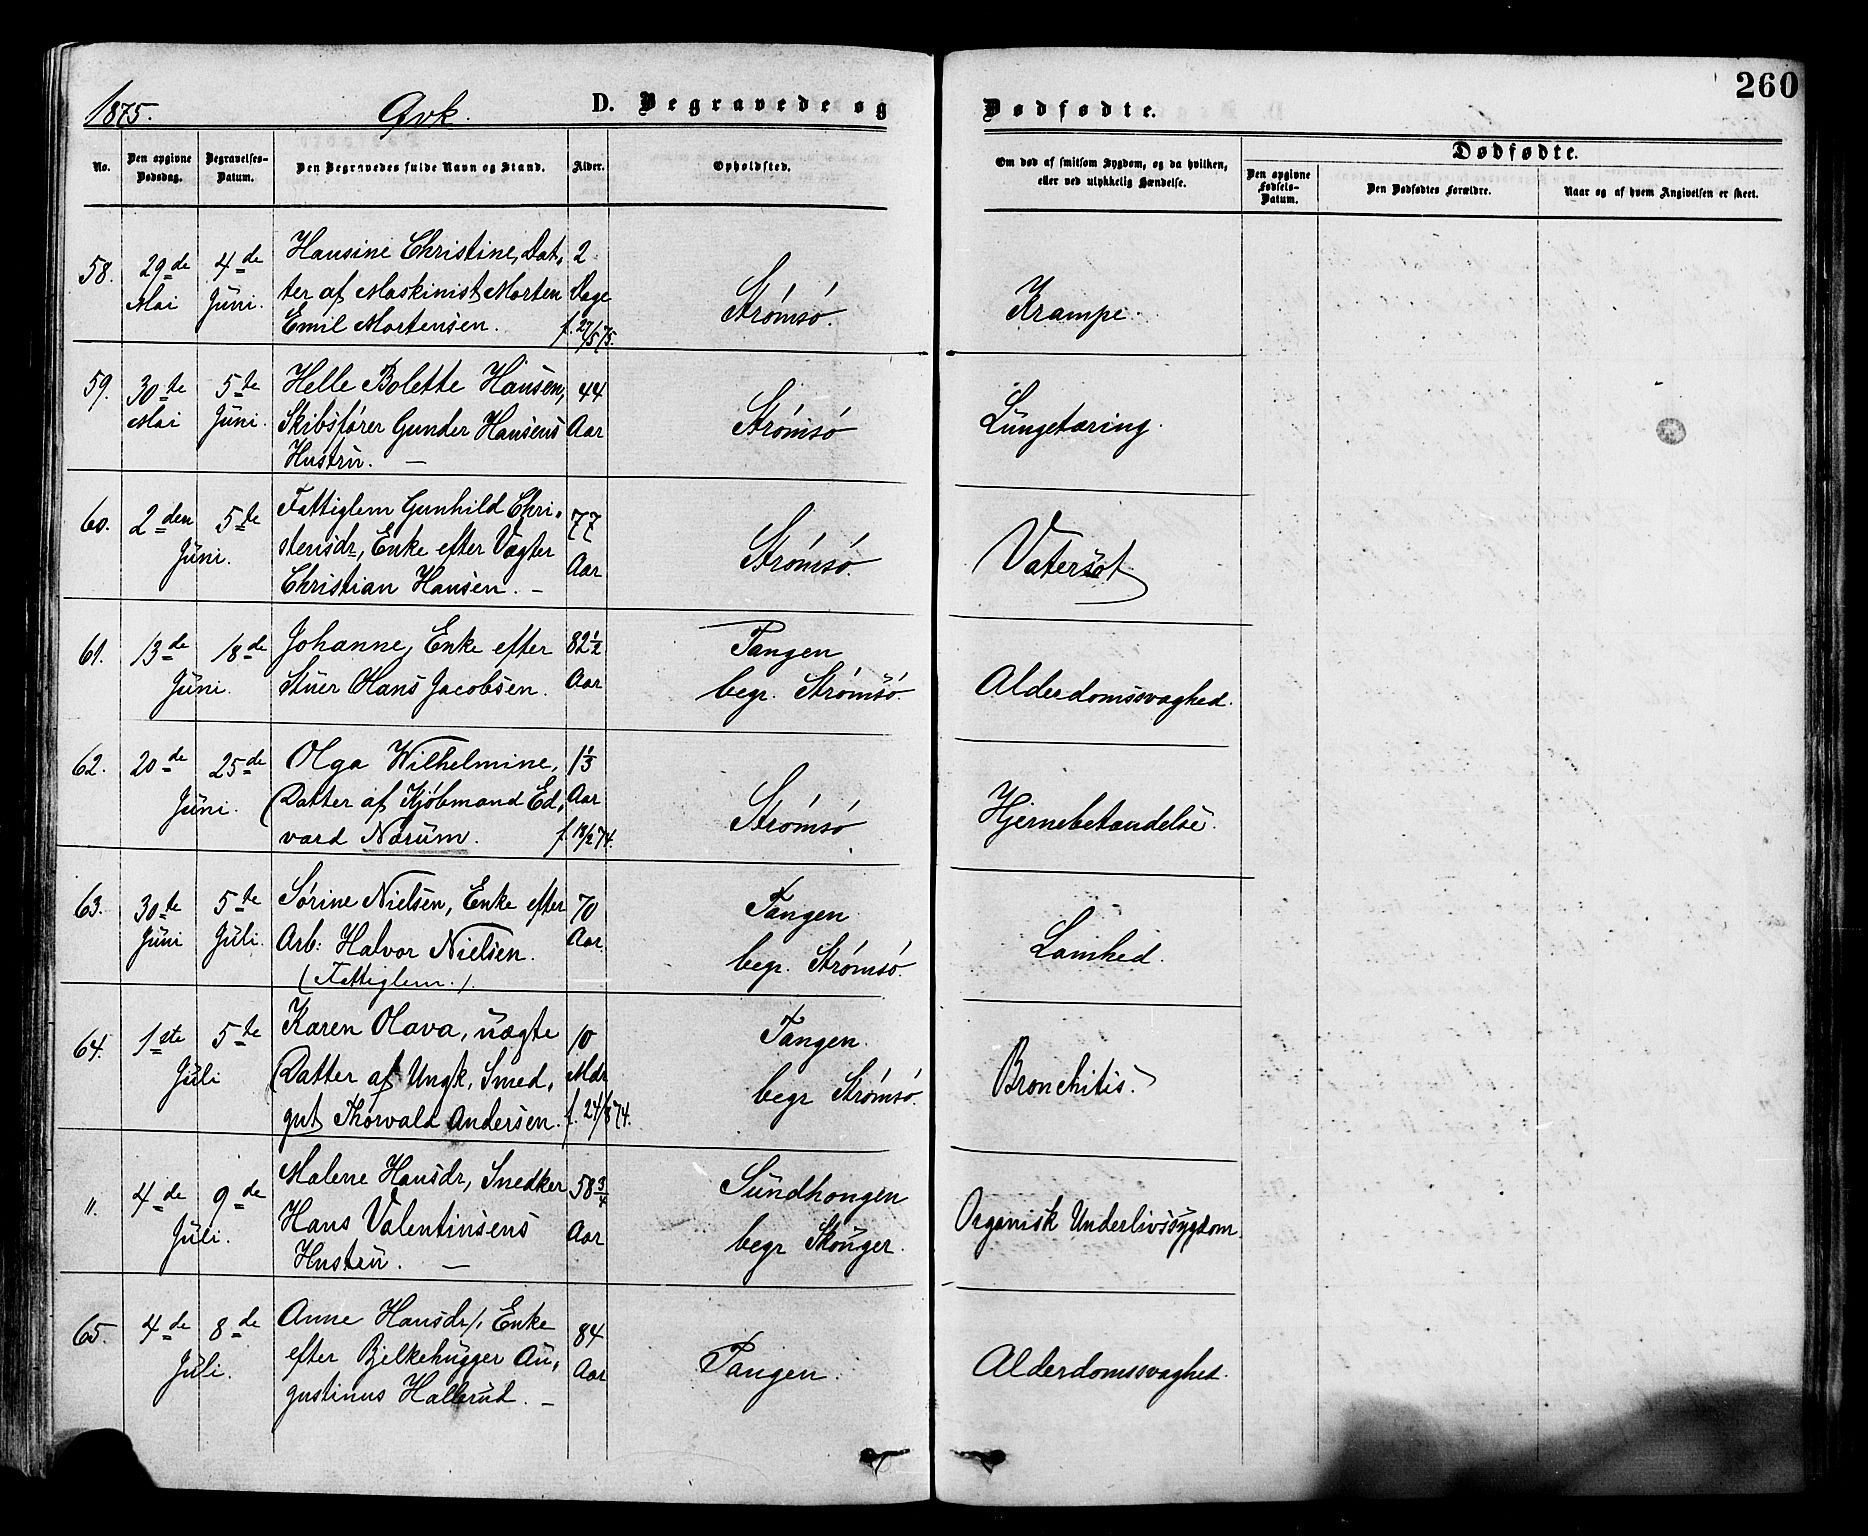 260
1875. Qvk. D. Begravede og Dødfødte.
No. Den opgivne Dødsdag. Begravelses-Datum. Den Begravedes fulde Navn og Stand. Alder. Opholdsted. Om død af smitsom Sygdom, og da hvilken, eller ved ulykkelig Hændelse. Dødfødte.
Den opgivne Fødsels-Datum. Den Dødfødtes Forældre. Naar og af hvem Angivelsen er skeet.
58. 29de Mai 4de Juni. Hansine Christine, Dat-
ter af Maskinist Morten
Emil Mortensen.
2 Dage f. 27/5 75.
Strømsø.
Krampe.
59. 30te Mai 5te Juni. Helle Bolette Hansen,
Skibsfører Gunder Hansens
Hustru. —
44 Aar
Strømsø
Lungetæring.
60. 2den 5te Juni. Fattiglem Gunhild Chri-
stensdr, Enke efter Vægter
Christian Hansen. —
77 Aar
Strømsø.
Vatersot
61. 13de 18de Juni. Johanne, Enke efter
Stuer Hans Jacobsen.
82 1/2 Aar
Tangen
begr. Strømsø
Alderdomssvaghed.
62. 20de 25de Juni. Olga Wilhelmine,
Datter af Kjøbmand Ed-
vard Narum.
1 1/3 Aar f. 18/2 74.
Strømsø
Hjernebetændelse.
63. 30te Juni 5te Juli. Sørine Nielsen, Enke efter
Arb: Halvor Nielsen.
(Fattiglem.)
70 Aar
Tangen
begr. Strømsø.
Lamhed.
64. 1ste 5te Juli Karen Olava, uægte
Datter af Ungk. Smed-
gut Thorvald Andersen.
10 Mdr f. 24/8 74.
Tangen.
begr Strømsø.
Bronchitis.
". 4de 9de Juli. Malene Hansdr, Snedker
Hans Valentinsens
Hustru. —
58 3/4 Aar
Sundhougen
begr Skouger.
Organisk Underlivssygdom.
65. 4de 8de Juli. Anne Hansdr, Enke
efter Bjelkehugger Au-
gustinus Hallerud. —
84 Aar
Tangen.
Alderdomssvaghed.